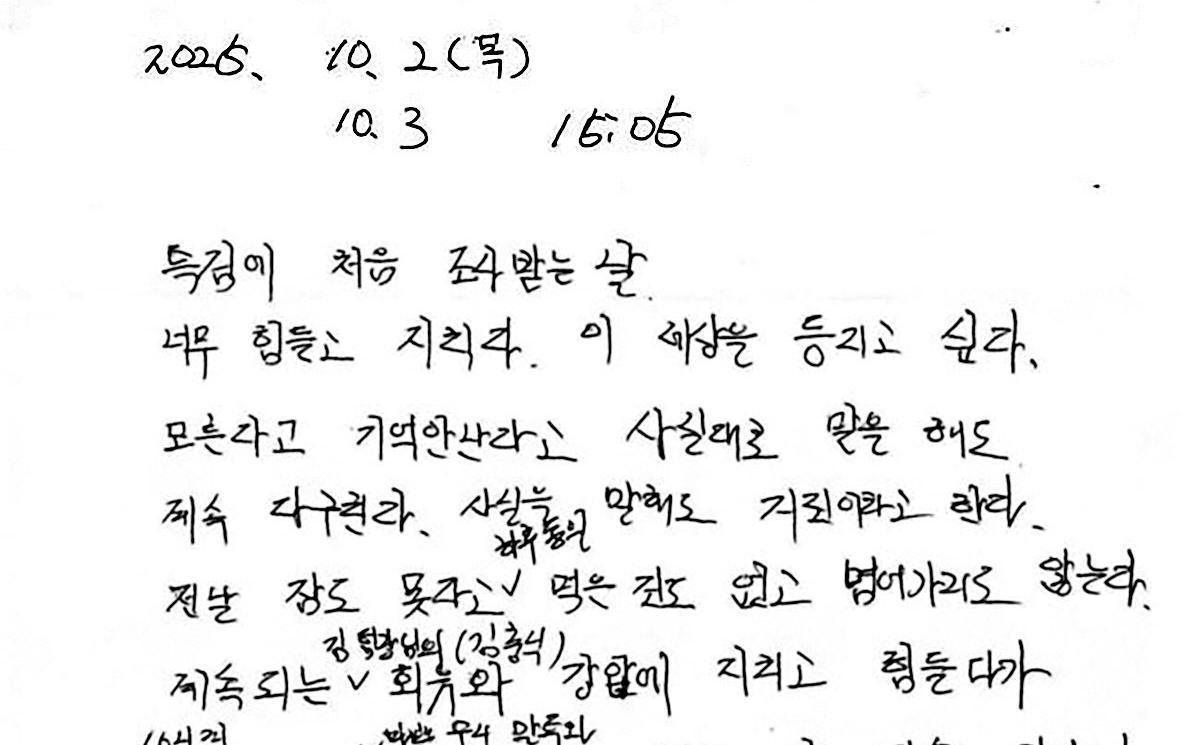 2025. 10. 2 (목)
10. 3 15:05
특검에 처음 조사받는 날.
너무 힘들고 지치다. 이 세상을 등지고 싶다.
모른다고 기억안난다고 사실대로 말을 해도
계속 다구친다. 사실을 말해도 거짓이라고 한다.
하루종일
전날 잠도 못자고 ∨ 먹은 것도 없고 넘어가지도 않는다.
김 팀장님의 (김충식)
계속되는 ∨ 회유와 강압에 지치고 힘들다가
말투와